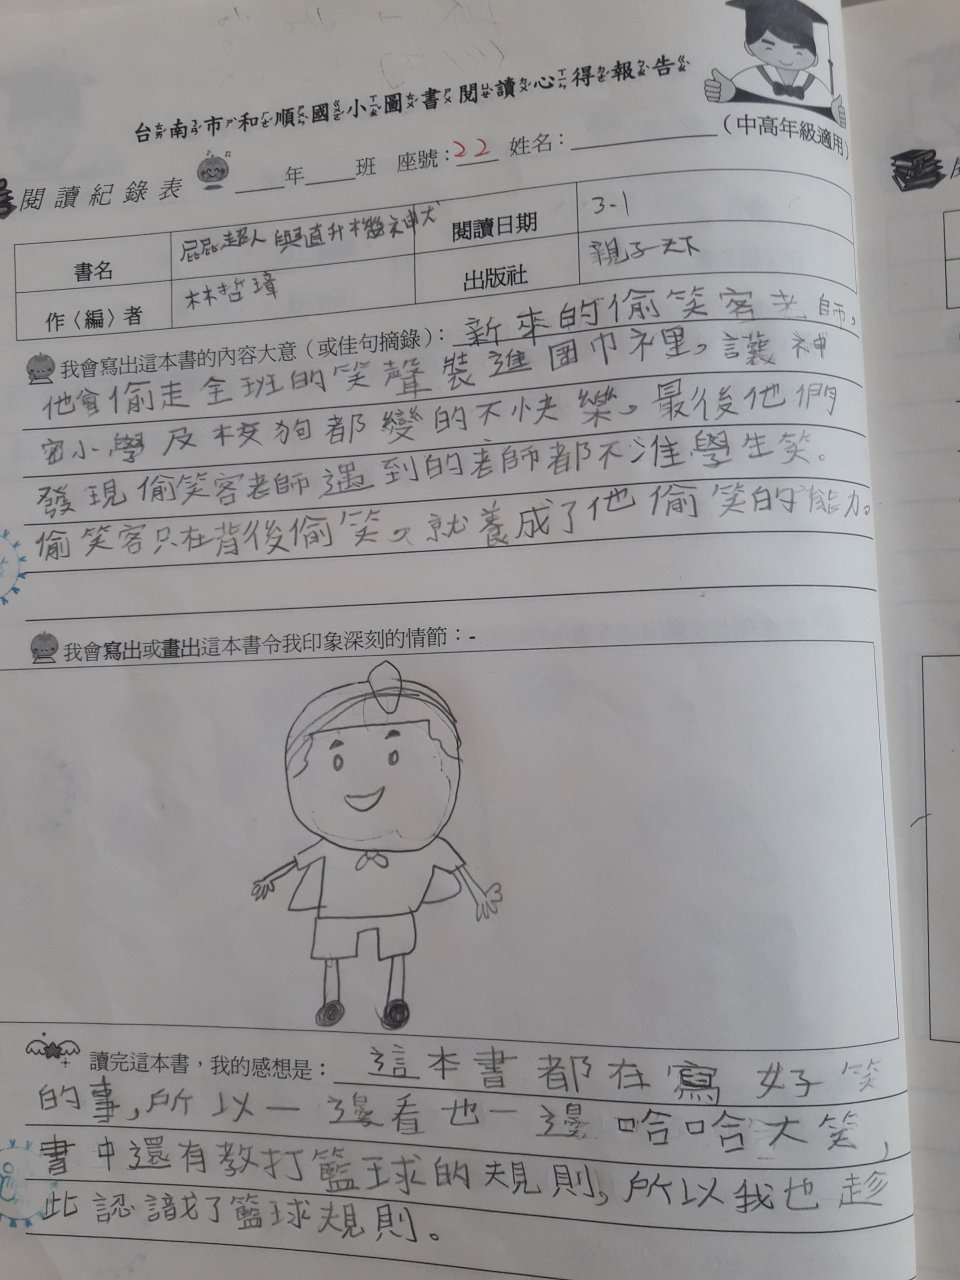 台南市和順國小圖書閱讀心得報告
(中高年級適用)
閱讀紀錄表 ____年____班 座號:22 姓名:________
書名 屁屁超人與直升機神犬 閱讀日期 3-1
作〈編〉者 林哲璋 出版社 親子天下
我會寫出這本書的內容大意(或佳句摘錄):新來的偷笑客老師,
他會偷走全班的笑聲裝進圍巾裡。讓神
密小學及校狗都變的不快樂。最後他們
發現偷笑客老師遇到的老師都不准學生笑。
偷笑客只在背後偷笑。就養成了他偷笑的能力。
我會寫出或畫出這本書令我印象深刻的情節:-
讀完這本書,我的感想是:這本書都在寫好笑
的事,所以一邊看也一邊哈哈大笑,
書中還有教打籃球的規則,所以我也趁
此認識了籃球規則。